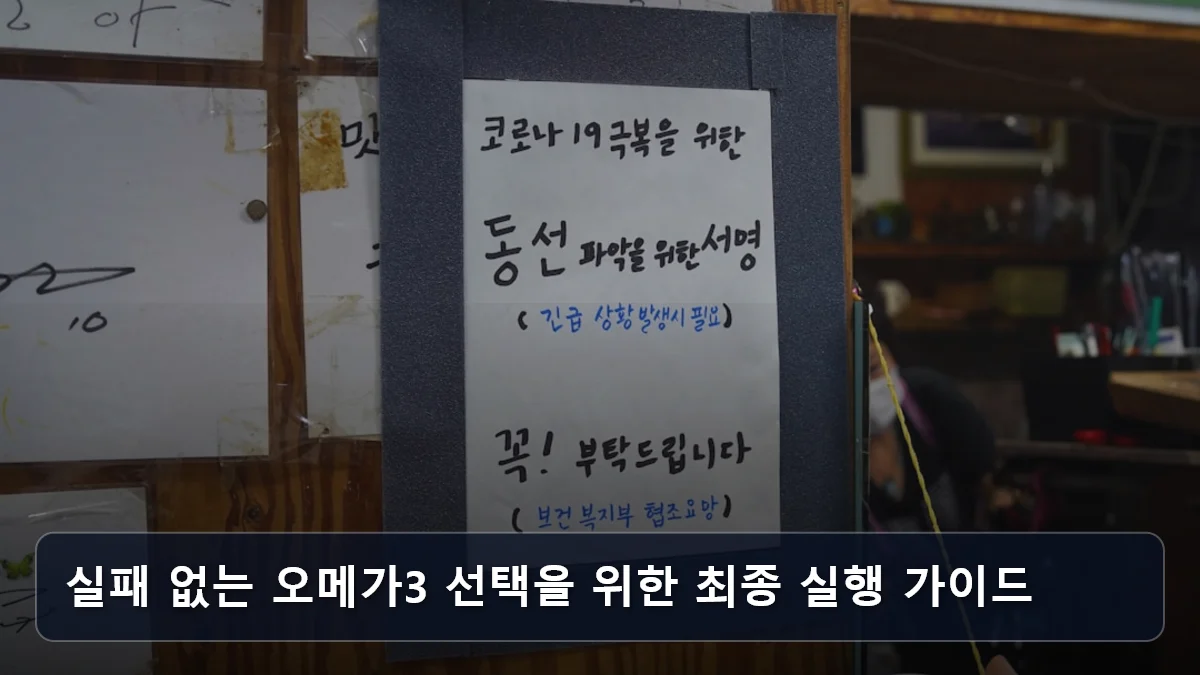 맛
10
코로나 19 극복을 위한
동선 파악을 위한 서명
( 긴급 상황 발생시 필요)
꼭! 부탁드립니다
( 보건복지부 협조요망)
실패 없는 오메가3 선택을 위한 최종 실행 가이드